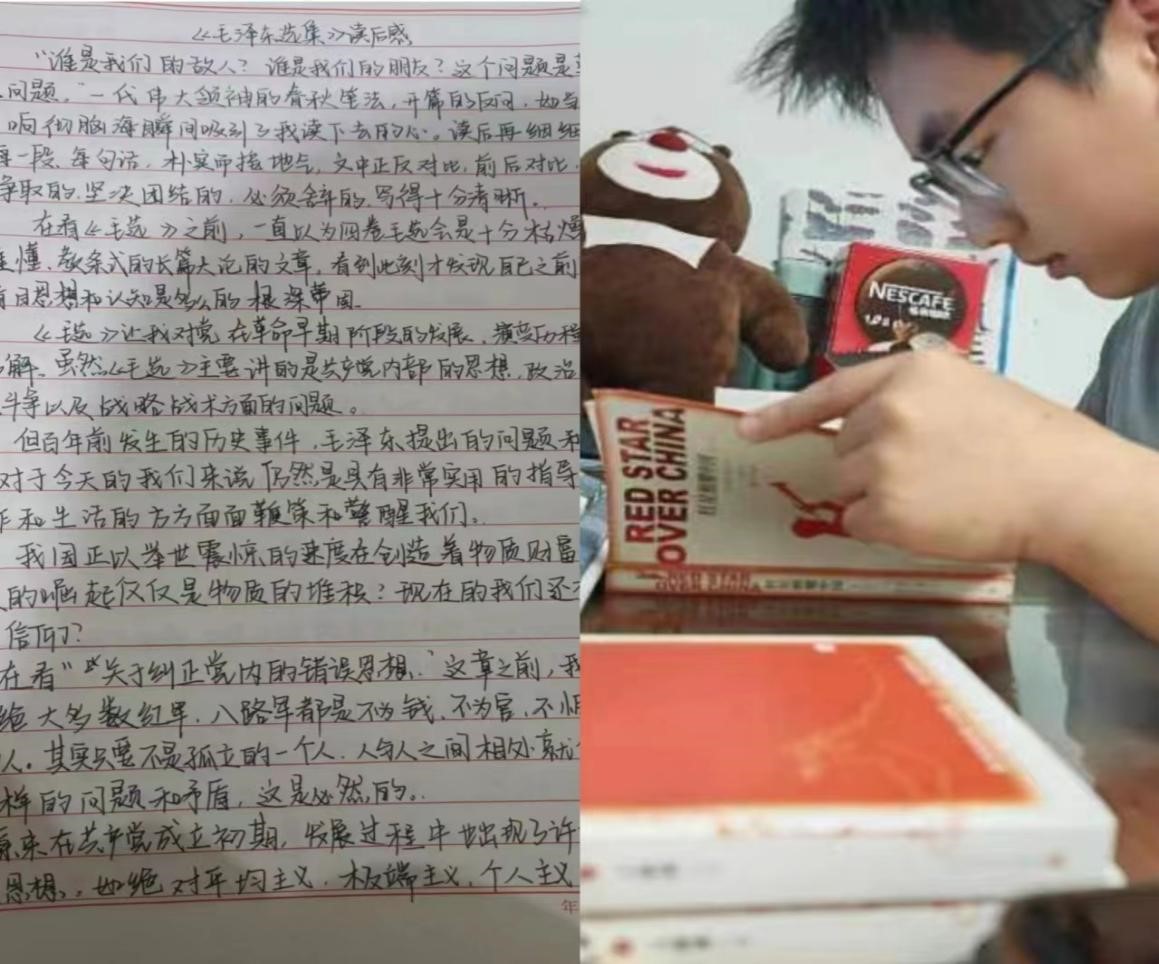 《毛泽东选集》读后感
"谁是我们的敌人？谁是我们的朋友？这个问题是
问题，"一代伟大领袖的春秋笔法，开篇的反问，如当
响彻脑海瞬间吸引了我读下去的心。读后再细细
每一段、每句话，朴实而接地气，文中正反对比，前后对比，
争取的、坚决团结的，必须舍弃的，写得十分清晰。
在看《毛选》之前，一直以为四卷毛选会是十分枯燥
难懂、教条式的长篇大论的文章，看到此刻才发现，自己之前
盲目思想和认知是多么的根深蒂固。
《毛选》让我对党在革命早期阶段的发展、演变历程
解。虽然《毛选》主要讲的是共产党内部的思想、政治
斗争以及战略战术方面的问题。
但百年前发生的历史事件，毛泽东提出的问题和
对于今天的我们来说仍然是具有非常实用的指导
作和生活的方方面面鞭策和警醒我们。
我国正以举世震惊的速度在创造着物质财富
的崛起仅仅是物质的堆积？现在的我们还
信仰？
在看"关于纠正党内的错误思想"这章之前，我
绝大多数红军、八路军都是不为钱、不为官、不怕
人。其实只要不是孤立的一个人，人与人之间相处就
样的问题和矛盾，这是必然的。
原来在共产党成立初期，发展过程中也出现了许
思想，如绝对平均主义、极端主义、个人主义
年
NESCAFE
RED STAR
OVER CHINA
红星照耀中国